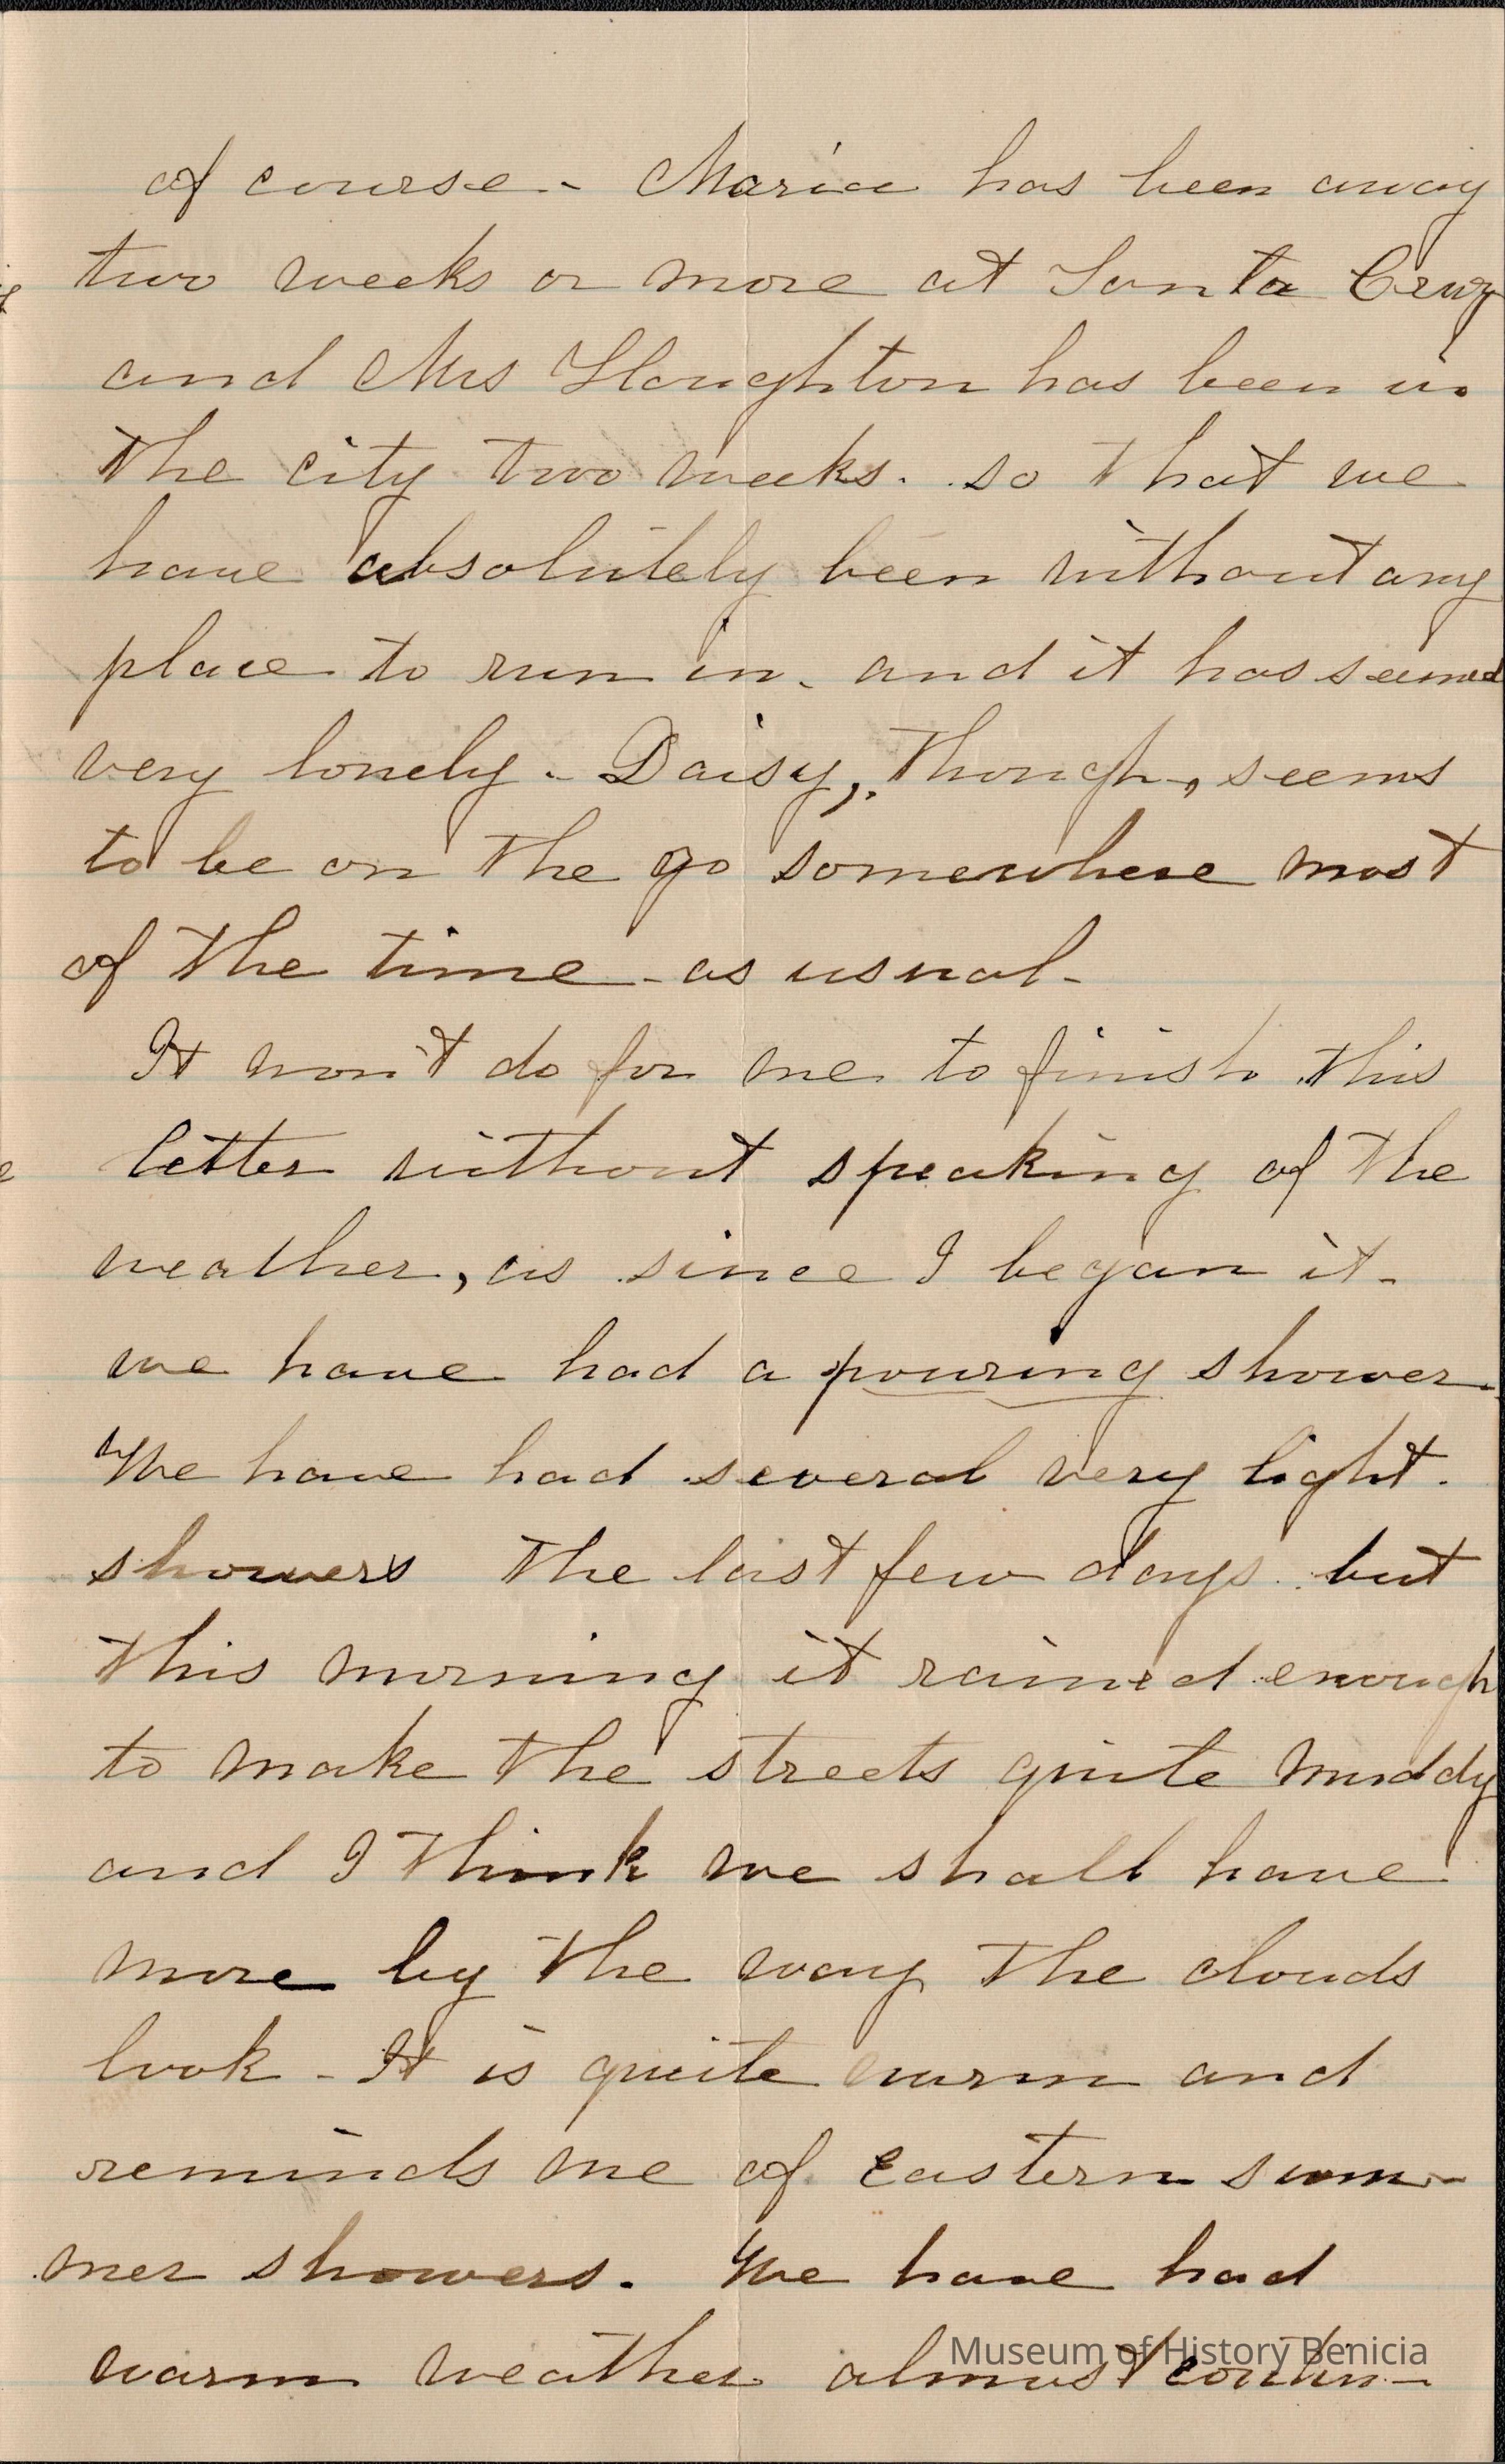 of course - Maria has been away
two weeks or more at Santa Cruz
and Mrs Houghton has been in
the city two weeks. so that we
have absolutely been without any
place to run in. and it has seemed
very lonely - Daisy, though, seems
to be on the go somewhere most
of the time - as usual -
It won't do for me to finish this
letter without speaking of the
weather, as since I began it -
we have had a pouring shower.
We have had several very light
showers the last few days. but
this morning it rained enough
to make the streets quite muddy
and I think we shall have
more by the way the clouds
look - It is quite warm and
reminds me of eastern sum-
mer showers. We have had
warm weather almost contin-
Museum of History Benicia